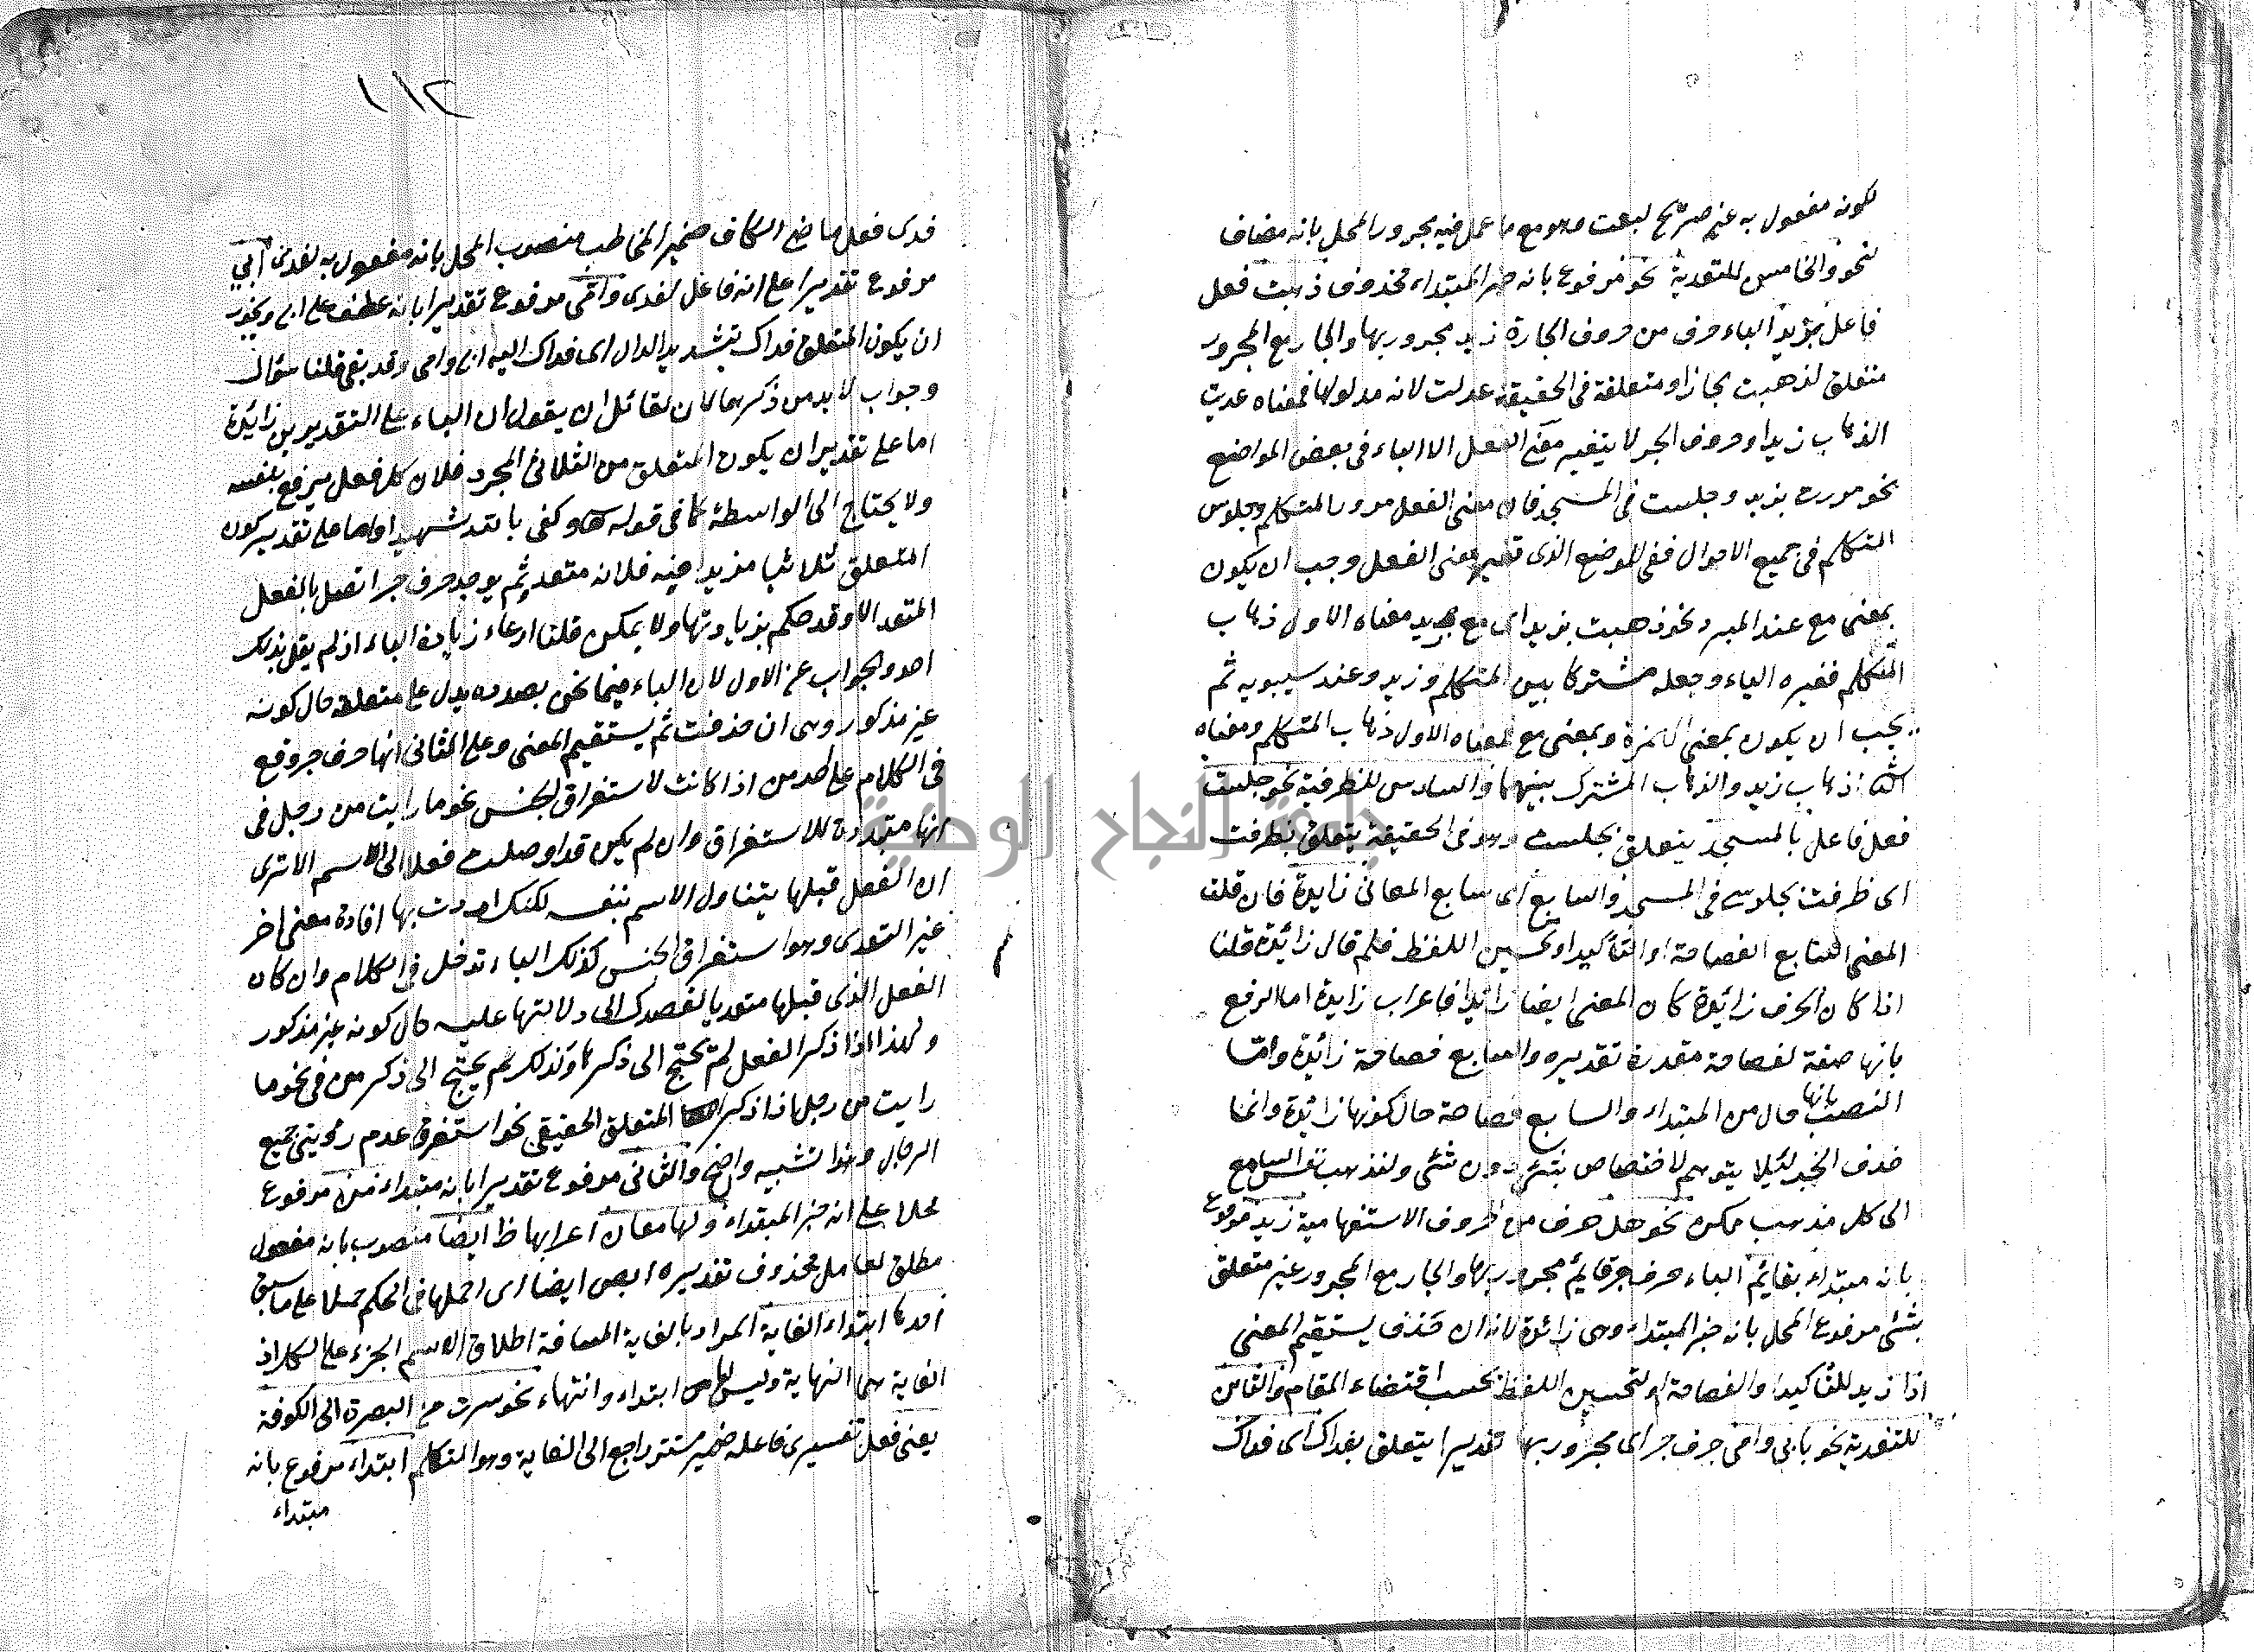 لكونه مفعول به غير صريح لبعت وهو مع ما عمل فيه مجرور المحل بانه مضاف
لنحو والخامس للتعدية نحو مرفوع بانه خبر المبتداء محذوف ذهبت فعل
فاعل بزيد الباء حرف من حروف الجارة زيد مجرور بها والجار مع المجرور
متعلق لذهبت مجازا ومتعلقة في الحقيقة عدلت لانه مدلولها فمعناه عديت
الذهاب زيدا وحروف الجر لا يتغير معنى الفعل الا الباء في بعض المواضع
نحو مررت بزيد وجلست في المسجد فان معنى الفعل مرور المتكلم وجلوس
المتكلم في جميع الاحوال ففي الموضع الذي تغير معنى الفعل وجب ان يكون
بمعنى مع عند المبرد نحو ذهبت بزيد اى مع زيد معناه الاول ذهاب
المتكلم فغيره الباء وجعله مشتركا بين المتكلم وزيد وعند سيبويه ثم
يجب ان يكون بمعنى الهمزة وبمعنى مع فمعناه الاول ذهاب المتكلم ومعناه
الثانى ذهاب زيد والذهاب المشترك بينهما والسادس للظرفية نحو جلست
فعل فاعل بالمسجد يتعلق بجلست وهو فى الحقيقة يتعلق بظرفت
اى ظرفت بجلوسى فى المسجد والسابع اى سابع المعانى زايدة فان قلت
المعنى السابع الفصاحة او التأكيد او تحسين اللفظ فلم قال زائدة قلنا
اذا كان الحرف زائدة كان المعنى ايضا زائدا فاعراب زايدة اما الرفع
بانها صفة لفصاحة مقدرة تقديره والسابع فصاحة زائدة واما
النصب بانها حال من المبتداء والسابع فصاحة حال كونها زائدة وانما
حذف الخبر لئيلا يتوهم لاختصاص بشئ دون شئ ولتذهب نفس السامع
الى كل مذهب ممكن نحو هل حرف من حروف الاستفهامية زيد مرفوع
بانه مبتداء بقائم الباء حرف جر قايم مجرور بها والجار مع المجرور غير متعلق
بشئ مرفوع المحل بانه خبر المبتداء وهى زائدة لانه ان حذف يستقيم المعنى
اذا زيد للتاكيد او الفصاحة او لتحسين اللفظ بحسب اقتضاء المقام والثامن
للتفدية نحو بابى وامى حرف جر اى مجرور بها تقديرا يتعلق بفداك اى فداك
١١٢
فدى فعل ماضى الكاف ضمير المخاطب منصوب المحل بانه مفعول به لفدى ابي
مرفوع تقديرا على انه فاعل لفدى وامى مرفوع تقديرا بانه عطف على ابى ويجوز
ان يكون المتعلق فداك بتشديد الدال اى فداك اليه ابى وامى وقد بقى قلنا سؤال
وجواب لابد من ذكرهما لان لقائل ان يقول ان الباء على التقديرين زائدة
اما على تقدير ان يكون المتعلق من الثلاثى المجرد فلان كل فعل يرفع بنفسه
ولا يحتاج الى الواسطة كما فى قوله وكفى بالله شهيدا واما على تقدير كون
المتعلق ثلاثيا مزيدا فيه فلانه متعد ثم يوجد حرف جر اتصل بالفعل
المتعد الا وقد حكم بزيادتها ولا يمكن قلنا ادعاء زيادة الباء اذ لم يقل بذلك
احد والجواب عن الاول لان الباء فيما نحن بصدده يدل على متعلقه حال كونه
غير مذكور وهى ان حذفت ثم يستقيم المعنى وعلى الثانى انها حرف جر وقع
فى الكلام على حد من اذا كانت لاستغراق الجنس نحو ما رايت من رجل فى
انها متجددة للاستغراق وان لم يكن قد اوصلت فعلا الى الاسم الا ترى
ان الفعل قبلها يتناول الاسم بنفسه لكنك اردت بها افادة معنى اخر
غير التعدى وهو استغراق الجنس كذلك الباء تدخل فى الكلام وان كان
الفعل الذى قبلها متعديا لقصدك الى دلالتها عليه حال كونه غير مذكور
ولهذا اذا ذكر الفعل لم تحتج الى ذكرها وكذلك لم يحتج الى ذكر من فى نحو ما
رايت من رجل اذا ذكر المتعلق الحقيقى نحو استغرق عدم رؤيتى جميع
الرجال وهذا تشبيه واضح والثانى مرفوع تقديرا بانه مبتداء من مرفوع
محلا على انه خبر المبتداء ولها معان اعرابها ظ ايضا منصوب بانه مفعول
مطلق لعامل محذوف تقديره ايض ايضا اى احملها فى الحكم حملا على ما سبق
احدها ابتداء الغاية المراد بالغاية المسافة اطلاق الاسم الجزء على الكل اذ
الغاية هى النهاية وليس لها ابتداء وانتهاء نحو سرت من البصرة الى الكوفة
يعنى فعل تفسيرى فاعله ضمير مستتر راجع الى الغاية وهو المتكلم ابتداء مرفوع بانه
مبتداء
جامعة النجاح الوطنية